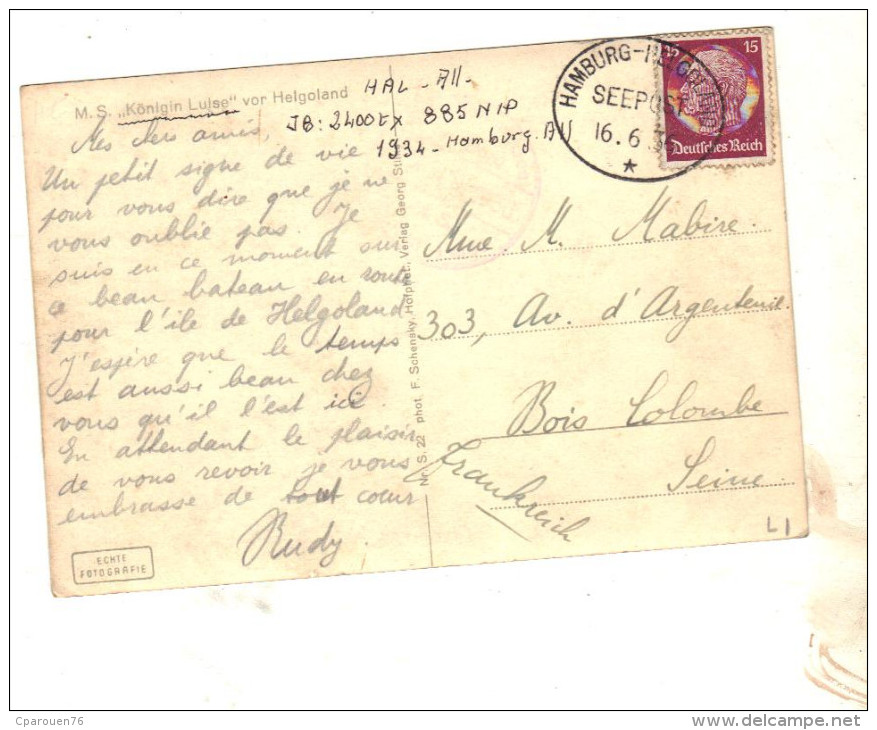 M. S. „Königin Luise" vor Helgoland
HAL - All -
JB: 2400tx 885 NIP
1934 - Hamburg. All
HAMBURG-HELGOLAND
SEEPOST
16. 6. 36
15
Deutsches Reich
Mes chers amis,
Un petit signe de vie
pour vous dire que je ne
vous oublie pas. Je
suis en ce moment sur
ce beau bateau en route
pour l'île de Helgoland.
J'espère que le temps
est aussi beau chez
vous qu'il l'est ici.
En attendant le plaisir
de vous revoir je vous
embrasse de tout cœur
Rudy.
Nr. S. 22 phot. F. Schensky, Hofphot., Verlag Georg
Mme. M. Mabire.
303, Av. d'Argenteuil.
Bois Colombe
Seine.
Frankreich
L1
ECHTE
FOTOGRAFIE
Cparouen76
www.delcampe.net